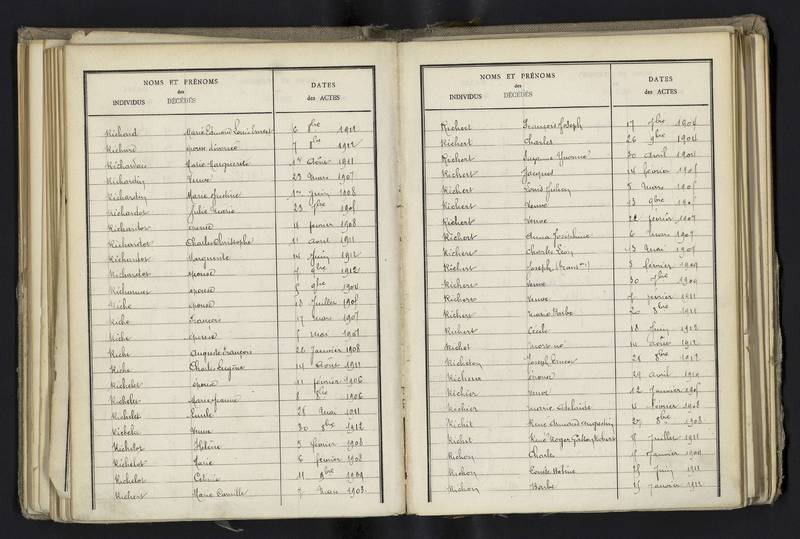 NOMS ET PRÉNOMS
des
INDIVIDUS DÉCÉDÉS
DATES
des ACTES
Richard Marie Edmond Louis Ernest 6 7bre 1911
Richard épouse divorcée 7 8bre 1912
Richardeau Marie Marguerite 1er Août 1911
Richardin Veuve 23 Mars 1907
Richardin Marie Justine 1er Juin 1908
Richardot Julie Marie 23 7bre 1905
Richardot épouse 4 février 1908
Richardot Charles Christophe 11 avril 1911
Richardot Marguerite 14 Juin 1912
Richardot épouse 7 9bre 1912
épouse 5 9bre 1904
Riche épouse 13 Juillet 1905
Riche François 17 mars 1907
Riche épouse 5 mai 1907
Riche Auguste François 26 Janvier 1908
Riche Charles Eugène 14 Août 1911
Richelet épouse 11 février 1906
Richelet Marie Jeanne 8 8bre 1906
Richelet Emile 28 Mai 1911
Richelet Veuve 30 8bre 1912
Richelot Hélène 5 février 1908
Richelot Marie 6 février 1908
Richelot Céline 11 9bre 1909
Richert Marie Camille 7 Mars 1903
NOMS ET PRÉNOMS
des
INDIVIDUS DÉCÉDÉS
DATES
des ACTES
Richert François Joseph 17 7bre 1904
Richert Charles 26 9bre 1904
Richert Suzanne Yvonne 30 avril 1905
Richert Jacques 14 février 1905
Richert Louis Julien 5 Mars 1905
Richert Veuve 13 9bre 1905
Richert Veuve 22 février 1907
Richert Anna Joséphine 6 mars 1907
Richert Charles Léon 13 Mai 1907
Richert Joseph (trans on) 3 février 1909
Richert Veuve 30 7bre 1909
Richert Veuve 5 février 1911
Richert Marie Barbe 20 8bre 1911
Richert Cécile 18 Juin 1912
Richet mort né 14 août 1912
Richeton Joseph Ernest 28 8bre 1912
épouse 29 avril 1910
Richier Veuve 12 Janvier 1905
Richier Marie Adélaïde 4 février 1908
Richit René Armand Augustin 27 8bre 1908
Richit René Roger Robert 8 Juillet 1911
Richon Charles 15 Janvier 1909
Richon 25 Juin 1911
Richon Barbe 15 Janvier 1912